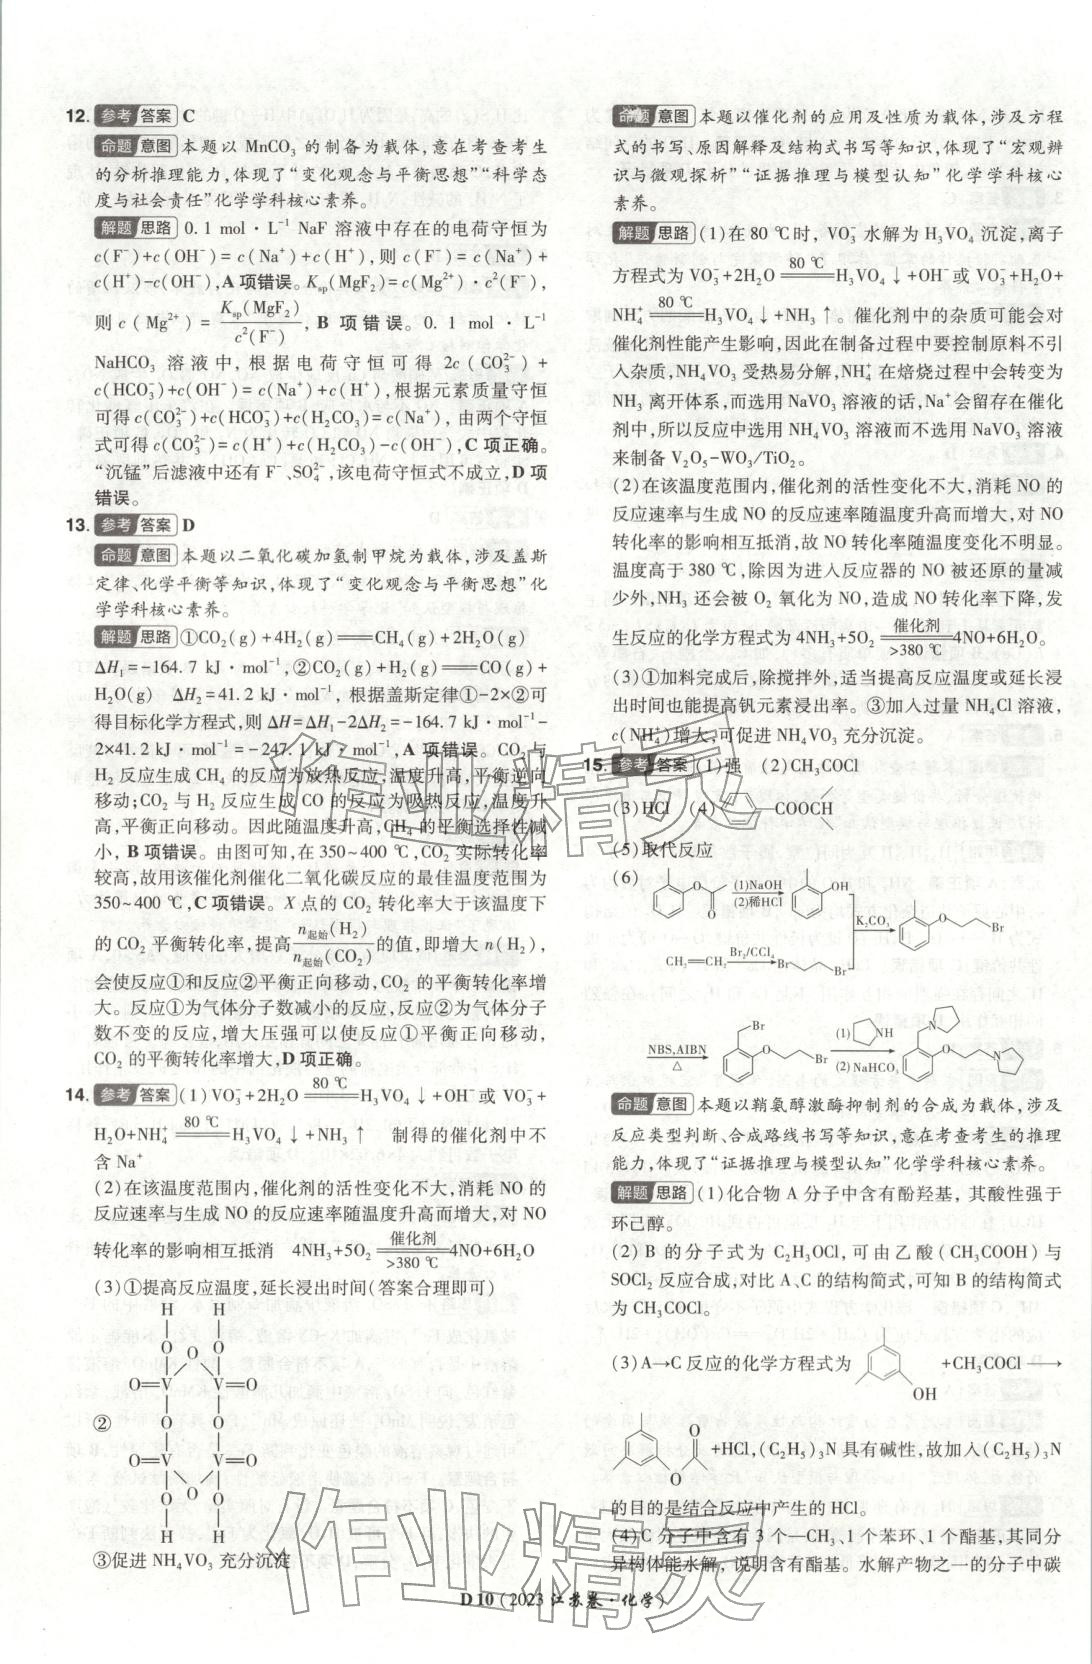 12. 参考 答案 C
命题 意图 本题以 MnCO₃ 的制备为载体,意在考查考生
的分析推理能力,体现了“变化观念与平衡思想”“科学态
度与社会责任”化学学科核心素养。
解题 思路 0.1 mol·L⁻¹ NaF 溶液中存在的电荷守恒为
c(F⁻)+c(OH⁻)=c(Na⁺)+c(H⁺),则 c(F⁻)=c(Na⁺)+
c(H⁺)-c(OH⁻),A 项错误。Ksp(MgF₂)=c(Mg²⁺)·c²(F⁻),
则 c(Mg²⁺)=Ksp(MgF₂)/c²(F⁻),B 项错误。0.1 mol·L⁻¹
NaHCO₃ 溶液中,根据电荷守恒可得 2c(CO₃²⁻)+
c(HCO₃⁻)+c(OH⁻)=c(Na⁺)+c(H⁺),根据元素质量守恒
可得 c(CO₃²⁻)+c(HCO₃⁻)+c(H₂CO₃)=c(Na⁺),由两个守恒
式可得 c(CO₃²⁻)=c(H⁺)+c(H₂CO₃)-c(OH⁻),C 项正确。
“沉锰”后滤液中还有 F⁻、SO₄²⁻,该电荷守恒式不成立,D 项
错误。
13. 参考 答案 D
命题 意图 本题以二氧化碳加氢制甲烷为载体,涉及盖斯
定律、化学平衡等知识,体现了“变化观念与平衡思想”化
学学科核心素养。
解题 思路 ①CO₂(g)+4H₂(g)══CH₄(g)+2H₂O(g)
ΔH₁=-164.7 kJ·mol⁻¹,②CO₂(g)+H₂(g)══CO(g)+
H₂O(g) ΔH₂=41.2 kJ·mol⁻¹,根据盖斯定律①-2×②可
得目标化学方程式,则 ΔH=ΔH₁-2ΔH₂=-164.7 kJ·mol⁻¹-
2×41.2 kJ·mol⁻¹=-247.1 kJ·mol⁻¹,A 项错误。CO₂ 与
H₂ 反应生成 CH₄ 的反应为放热反应,温度升高,平衡逆向
移动;CO₂ 与 H₂ 反应生成 CO 的反应为吸热反应,温度升
高,平衡正向移动。因此随温度升高,CH₄ 的平衡选择性减
小,B 项错误。由图可知,在 350~400 ℃,CO₂ 实际转化率
较高,故用该催化剂催化二氧化碳反应的最佳温度范围为
350~400 ℃,C 项错误。X 点的 CO₂ 转化率大于该温度下
的 CO₂ 平衡转化率,提高 n起始(H₂)/n起始(CO₂) 的值,即增大 n(H₂),
会使反应①和反应②平衡正向移动,CO₂ 的平衡转化率增
大。反应①为气体分子数减小的反应,反应②为气体分子
数不变的反应,增大压强可以使反应①平衡正向移动,
CO₂ 的平衡转化率增大,D 项正确。
14. 参考 答案 (1)VO₃⁻+2H₂O ══(80 ℃) H₃VO₄↓+OH⁻ 或 VO₃⁻+
H₂O+NH₄⁺ ══(80 ℃) H₃VO₄↓+NH₃↑ 制得的催化剂中不
含 Na⁺
(2)在该温度范围内,催化剂的活性变化不大,消耗 NO 的
反应速率与生成 NO 的反应速率随温度升高而增大,对 NO
转化率的影响相互抵消 4NH₃+5O₂ ══(催化剂, >380 ℃) 4NO+6H₂O
(3)①提高反应温度,延长浸出时间(答案合理即可)
H H
O O
O
O=V V=O
②
O O
O=V V=O
O
O O
H H
③促进 NH₄VO₃ 充分沉淀
命题 意图 本题以催化剂的应用及性质为载体,涉及方程
式的书写、原因解释及结构式书写等知识,体现了“宏观辨
识与微观探析”“证据推理与模型认知”化学学科核心
素养。
解题 思路 (1)在 80 ℃时,VO₃⁻ 水解为 H₃VO₄ 沉淀,离子
方程式为 VO₃⁻+2H₂O ══(80 ℃) H₃VO₄↓+OH⁻ 或 VO₃⁻+H₂O+
NH₄⁺ ══(80 ℃) H₃VO₄↓+NH₃↑。催化剂中的杂质可能会对
催化剂性能产生影响,因此在制备过程中要控制原料不引
入杂质,NH₄VO₃ 受热易分解,NH₄⁺ 在焙烧过程中会转变为
NH₃ 离开体系,而选用 NaVO₃ 溶液的话,Na⁺会留存在催化
剂中,所以反应中选用 NH₄VO₃ 溶液而不选用 NaVO₃ 溶液
来制备 V₂O₅-WO₃/TiO₂。
(2)在该温度范围内,催化剂的活性变化不大,消耗 NO 的
反应速率与生成 NO 的反应速率随温度升高而增大,对 NO
转化率的影响相互抵消,故 NO 转化率随温度变化不明显。
温度高于 380 ℃,除因为进入反应器的 NO 被还原的量减
少外,NH₃ 还会被 O₂ 氧化为 NO,造成 NO 转化率下降,发
生反应的化学方程式为 4NH₃+5O₂ ══(催化剂, >380 ℃) 4NO+6H₂O。
(3)①加料完成后,除搅拌外,适当提高反应温度或延长浸
出时间也能提高钒元素浸出率。③加入过量 NH₄Cl 溶液,
c(NH₄⁺)增大,可促进 NH₄VO₃ 充分沉淀。
15. 参考 答案 (1)强 (2)CH₃COCl
(3)HCl (4) COOCH
(5)取代反应
(6) O O (1)NaOH (2)稀HCl OH
K₂CO₃ O Br
CH₂=CH₂ Br₂/CCl₄ Br Br
NBS,AIBN △ Br O Br (1) NH (2) NaHCO₃ N O N
命题 意图 本题以鞘氨醇激酶抑制剂的合成为载体,涉及
反应类型判断、合成路线书写等知识,意在考查考生的推理
能力,体现了“证据推理与模型认知”化学学科核心素养。
解题 思路 (1)化合物 A 分子中含有酚羟基,其酸性强于
环己醇。
(2)B 的分子式为 C₂H₃OCl,可由乙酸(CH₃COOH)与
SOCl₂ 反应合成,对比 A、C 的结构简式,可知 B 的结构简式
为 CH₃COCl。
(3)A→C 反应的化学方程式为 OH +CH₃COCl ⟶
O O +HCl,(C₂H₅)₃N 具有碱性,故加入(C₂H₅)₃N
的目的是结合反应中产生的 HCl。
(4)C 分子中含有 3 个—CH₃、1 个苯环、1 个酯基,其同分
异构体能水解,说明含有酯基。水解产物之一的分子中碳
D 10(2023 江苏卷·化学)
作业精灵
作业精灵